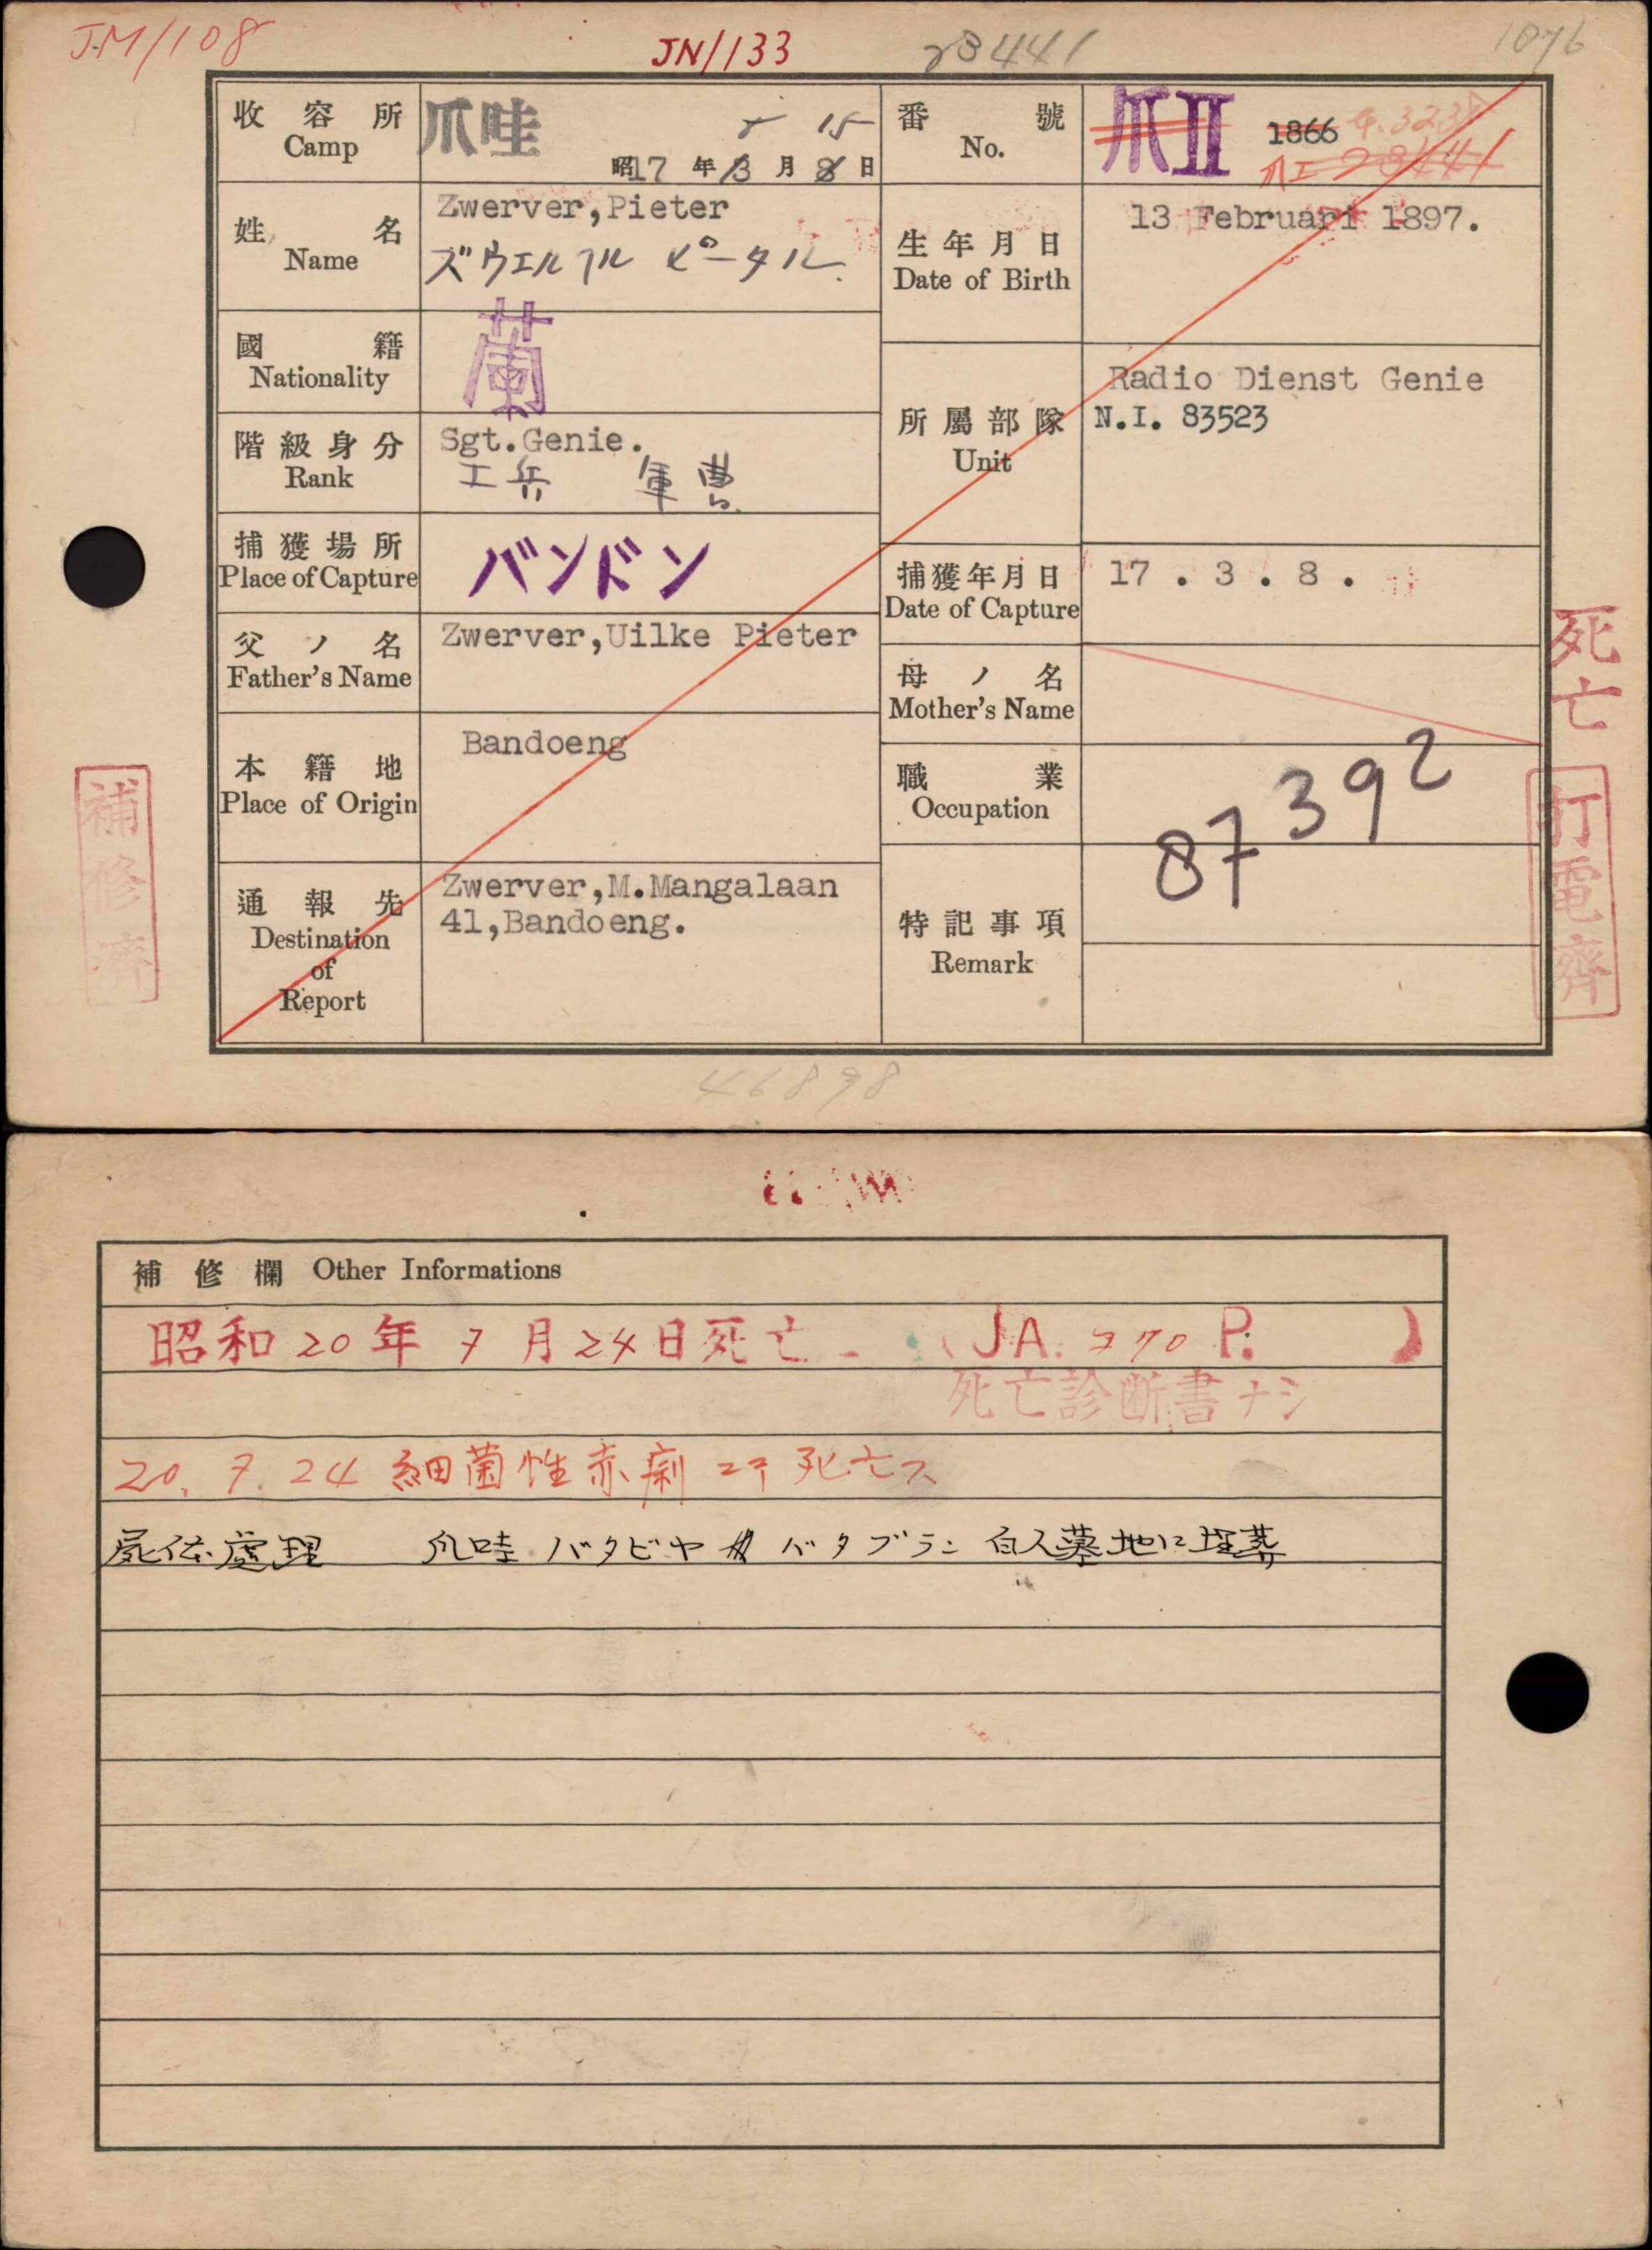 J.M/108
JN/133
23441
1076
收容所
Camp
爪哇
8 15
昭17年3月8日
番號
No.
爪II 1866
爪I 23441
姓名
Name
Zwerver,Pieter
ズウエルフル ピータル
生年月日
Date of Birth
13 Februari 1897.
國籍
Nationality
蘭
階級身分
Rank
Sgt.Genie.
工兵 軍曹
所屬部隊
Unit
Radio Dienst Genie
N.I. 83523
捕獲場所
Place of Capture
バンドン
捕獲年月日
Date of Capture
17 . 3 . 8 .
父ノ名
Father's Name
Zwerver,Uilke Pieter
母ノ名
Mother's Name
本籍地
Place of Origin
Bandoeng
職業
Occupation
87392
通報先
Destination
of
Report
Zwerver,M.Mangalaan
41,Bandoeng.
特記事項
Remark
死亡
打電濟
補修濟
46898
補修欄 Other Informations
昭和20年7月24日死亡 (JA. 270 P. )
死亡診断書ナシ
20. 7. 24 細菌性赤痢ニテ死亡ス
屍体處理 爪哇 バタビヤ州 バタブラン 白人墓地に埋葬